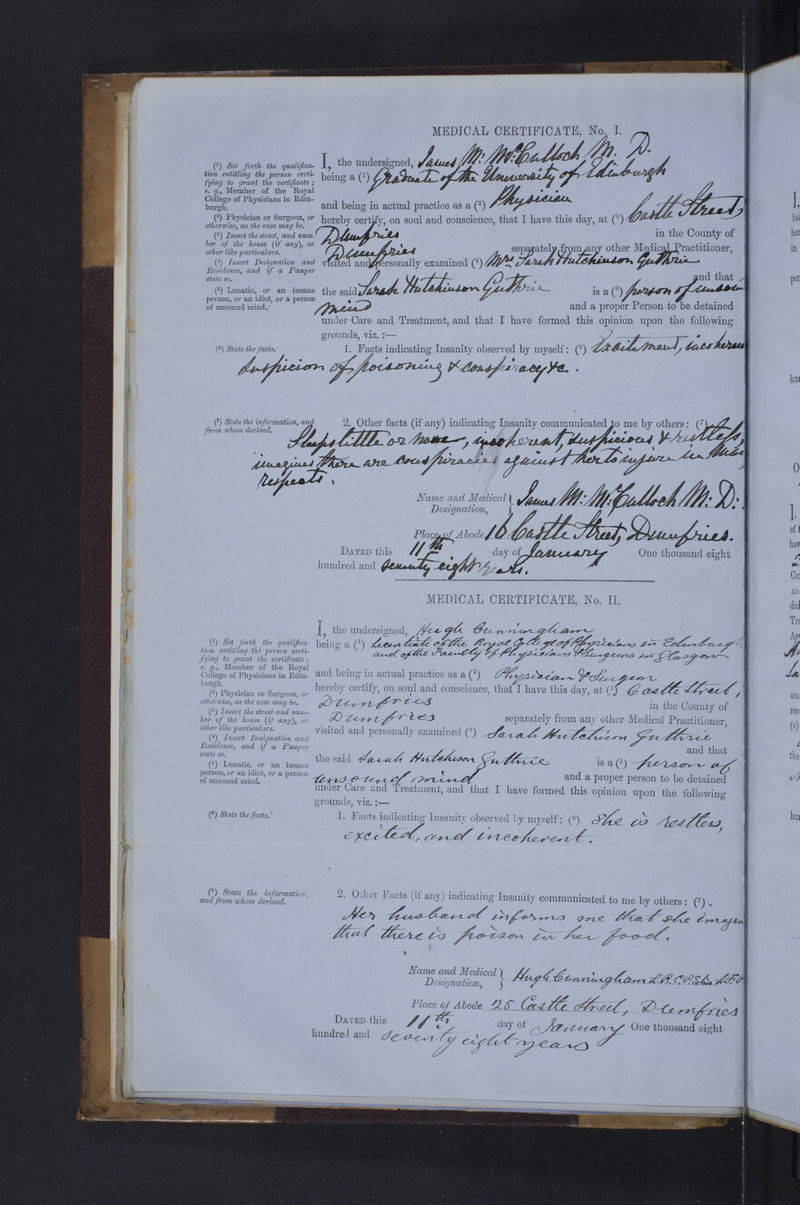 MEDICAL CERTIFICATE, No. I.
(¹) Set forth the qualifica-
tion entitling the person certi-
fying to grant the certificate;
e. g., Member of the Royal
College of Physicians in Edin-
burgh.
(²) Physician or Surgeon, or
otherwise, as the case may be.
(³) Insert the street, and num-
ber of the house (if any), or
other like particulars.
(⁴) Insert Designation and
Residence, and if a Pauper
state so.
(⁵) Lunatic, or an insane
person, or an idiot, or a person
of unsound mind.
(⁶) State the facts.
(⁷) State the information, and
from whom derived.
I, the undersigned, James M: McCulloch M. D.
being a (¹) Graduate of the University of Edinburgh
and being in actual practice as a (²) Physician
hereby certify, on soul and conscience, that I have this day, at (³) Castle Street,
Dumfries in the County of
Dumfries separately from any other Medical Practitioner,
visited and personally examined (⁴) Mrs Sarah Hutchinson Guthrie
and that
the said Sarah Hutchinson Guthrie is a (⁵) person of unsound
mind and a proper Person to be detained
under Care and Treatment, and that I have formed this opinion upon the following
grounds, viz. :—
1. Facts indicating Insanity observed by myself: (⁶) Excitement, incoherence
suspicion of poisoning & conspiracy &c.
2. Other facts (if any) indicating Insanity communicated to me by others: (⁷)
Sleeps little or none, incoherent, suspicious & restless,
imagines there are conspiracies against her to injure in
respects.
Name and Medical Designation, } James M: McCulloch M: D:
Place of Abode 16 Castle Street, Dumfries.
DATED this 11th day of January One thousand eight
hundred and seventy eight years.
MEDICAL CERTIFICATE, No. II.
(¹) Set forth the qualifica-
tion entitling the person certi-
fying to grant the certificate;
e. g., Member of the Royal
College of Physicians in Edin-
burgh.
(²) Physician or Surgeon, or
otherwise, as the case may be.
(³) Insert the street and num-
ber of the house (if any), or
other like particulars.
(⁴) Insert Designation and
Residence, and if a Pauper
state so.
(⁵) Lunatic, or an insane
person, or an idiot, or a person
of unsound mind.
(⁶) State the facts.
(⁷) State the information,
and from whom derived.
I, the undersigned, Hugh Cunningham
being a (¹) Licentiate of the Royal College of Physicians in Edinburgh
and of the Faculty of Physicians & Surgeons in Glasgow
and being in actual practice as a (²) Physician & Surgeon
hereby certify, on soul and conscience, that I have this day, at (³) Castle Street,
Dumfries in the County of
Dumfries separately from any other Medical Practitioner,
visited and personally examined (⁴) Sarah Hutchison Guthrie
and that
the said Sarah Hutcheson Guthrie is a (⁵) person of
unsound mind and a proper person to be detained
under Care and Treatment, and that I have formed this opinion upon the following
grounds, viz. :—
1. Facts indicating Insanity observed by myself: (⁶) She is restless,
excited, and incoherent.
2. Other Facts (if any) indicating Insanity communicated to me by others: (⁷).
Her husband informs me that she imagin
that there is poison in her food.
Name and Medical Designation, } Hugh Cunningham L.R.C.P. Edin
Place of Abode 25 Castle Street, Dumfries
DATED this 11th day of January One thousand eight
hundred and seventy eight years